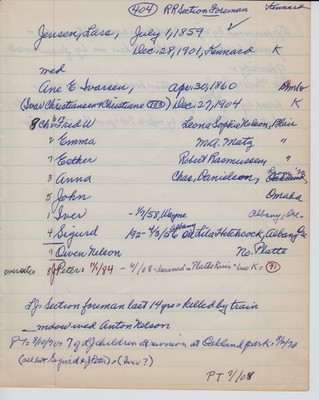 404 RR Section Foreman Kennard
Jensen, Lars, July 1, 1859
Dec. 28, 1901, Kennard K
wed
Ane E. Ivarsen, Apr. 30, 1860
Dec 27, 1904 K
8 Ch: Fred W Leona Sophie Nelson, Blair
2 Emma M.A. Matz "
7 Esther Robert Rasmussen "
3 Anna Chas. Danielson,
5 John Omaha
1 Iver - 4/9/58, Wayne Albany, Ore.
4 Sigurd Lila Hitchcock, Albany, Ore
9 Owen Nelson No. Platte
8 J Peter: - 4/08 - drowned - Platte River K
LJ = Section foreman last 14 yrs = killed by train
widow wed Anton Nelson
7 of LJ children @ reunion at Oakland park =
(all but Sigurd & J Peter) = (Iver?)
PT 7/08